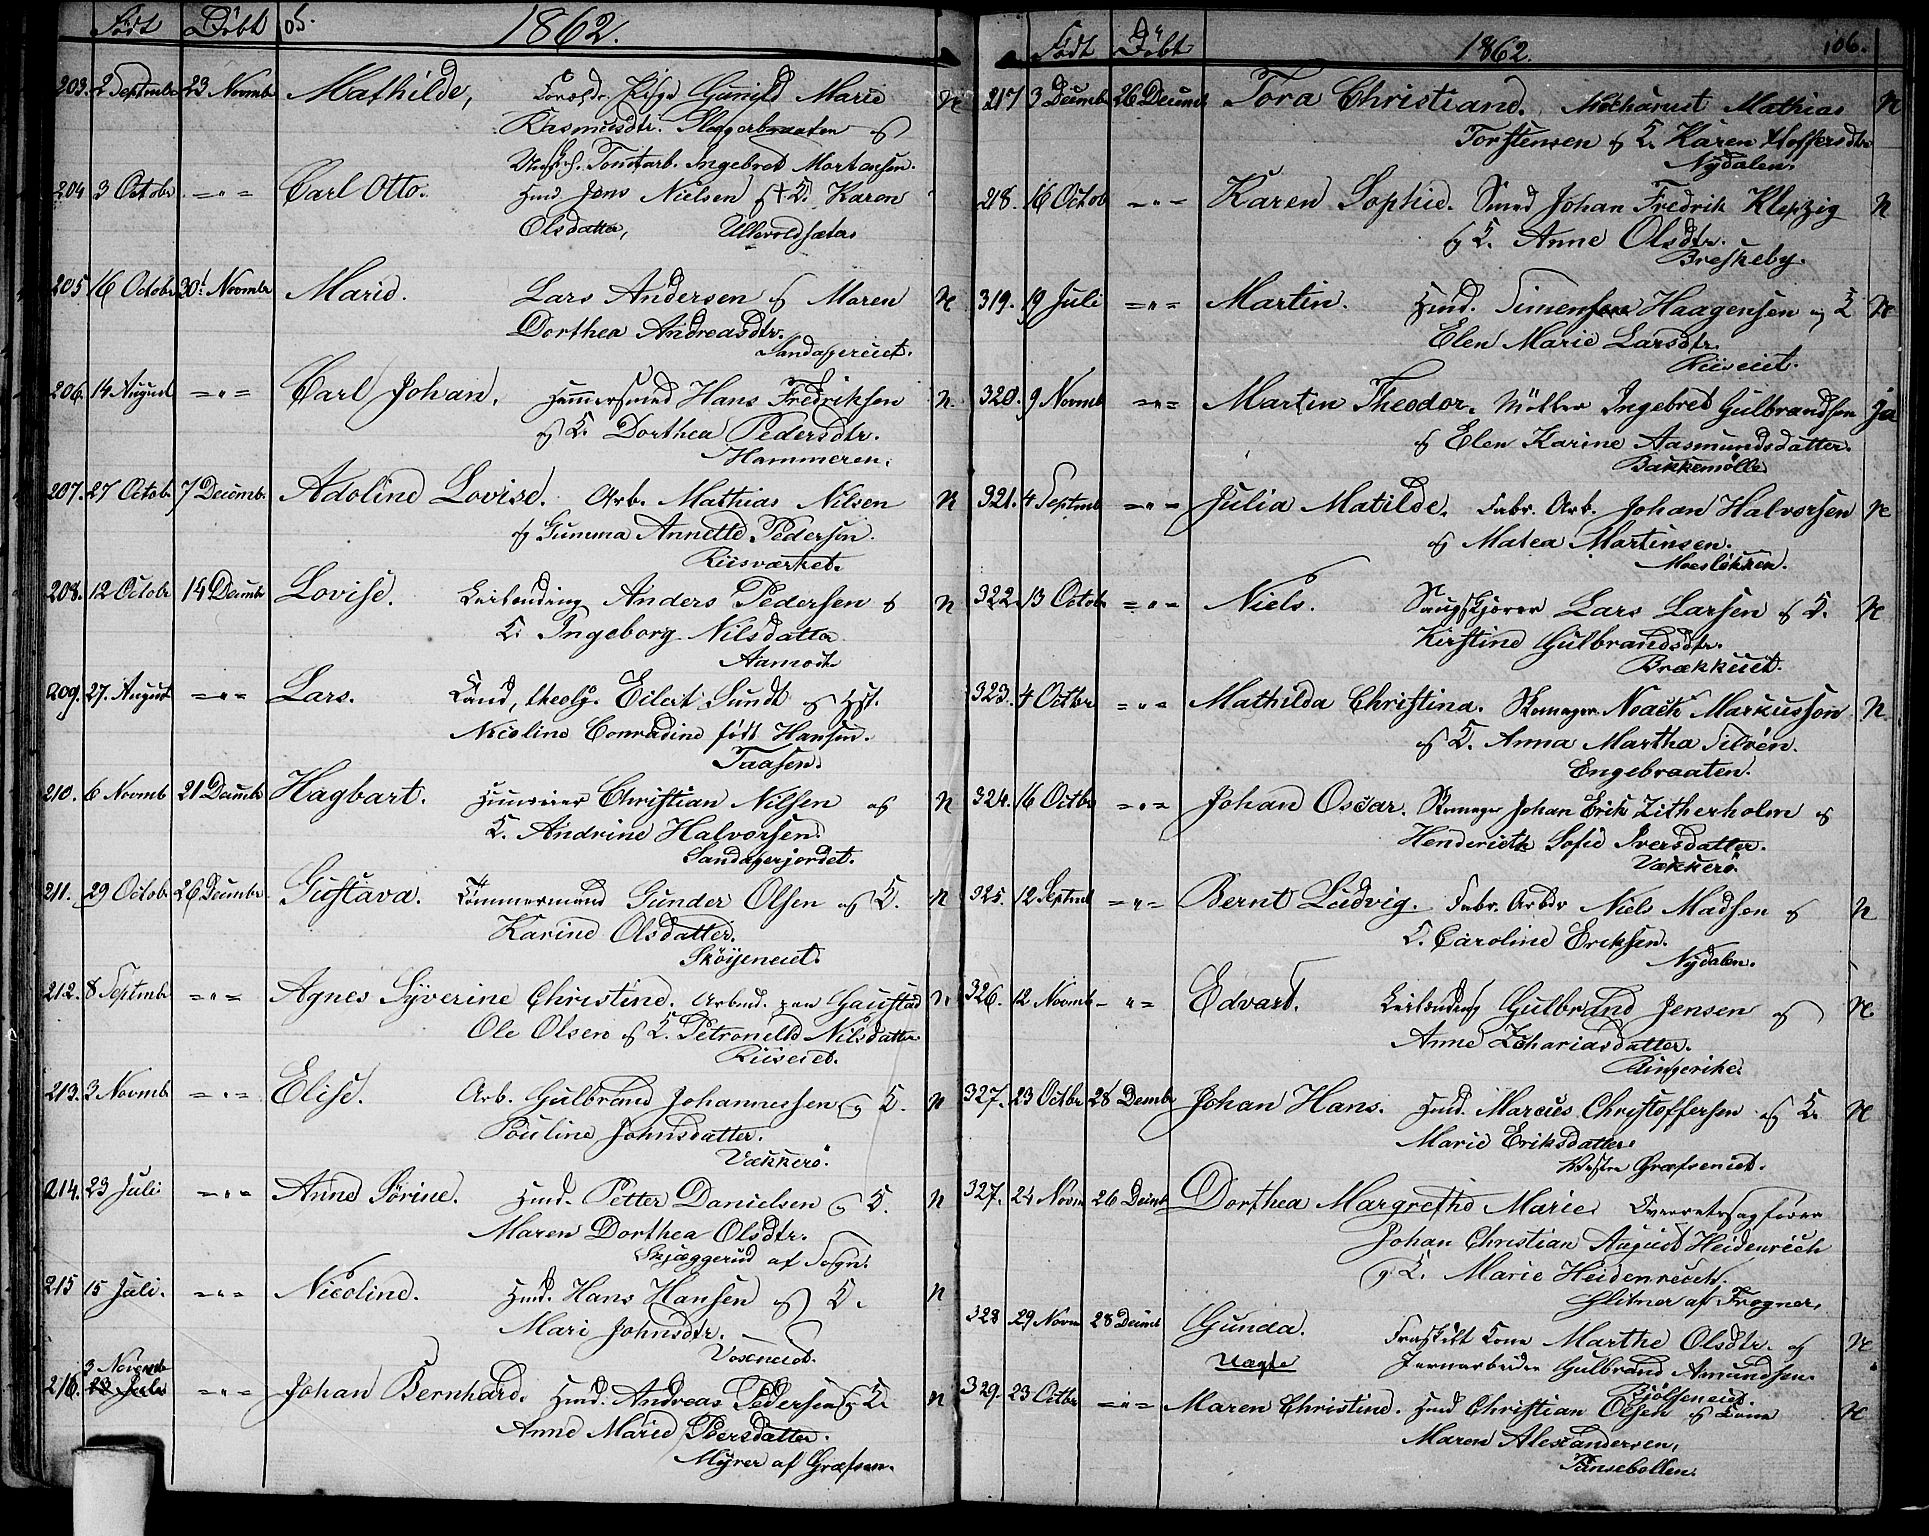 Født Døbt 105. 1862.
203. 2 Septembr 23 Novmbr Mathilde, Pige Gunild Marie N
Rasmusdtr. og
Tomtarb. Ingebret Mortensen.
204 3 Octobr —"— Carl Otto. Huusm. Jens Nielsen og K. Karen
Olsdatter, Ullevoldsæter
205 16 Octobr 30. Novmbr Marie. Lars Andersen og Maren N
Dorthea Andreasdtr.
Sandagereiet.
206. 14 August —"— Carl Johan. Hammersmed Hans Fredriksen N.
og K. Dorthea Pedersdtr.
Hammeren.
207. 27 Octob. 7 Decembr. Adoline Lovise. Arb. Mathias Nilsen N
og Gumma Annette Pedersen.
Riisværket.
208. 12 Octobr 14 Decmbr Lovise. Leilending Anders Pedersen og N
K. Ingeborg Nilsdatter
Aamodt
209. 27. August —"— Lars. Cand. theolg. Eilert Sundt og Hst.
Nicoline Conradine født Hansen.
Taasen.
210. 6 Novmb 21 Decmbr Hagbart. Huuseier Christian Nilsen og N
K. Andrine Halvorsen.
Sandagerjordet.
211. 29 Octob. 26 Decmbr. Gustava. Tömmermand Gunder Olsen og K. N
Karine Olsdatter.
Sköijeneiet.
212. 8 Septmbr —"— Agnes Syverine Christine. Arbmd. paa Gaustad N.
Ole Olsen og K. Petronelle Nilsdatter
Riiseiet.
213. 3 Novmb —"— Elise. Arb. Gulbrand Johannessen og K. N
Pouline Johnsdatter.
Vækkerö.
214. 23 Juli —"— Anne Sörine. Huusmd. Petter Danielsen og K. N
Maren Dorthea Olsdtr.
Skjæggerud af Sogn.
215 15 Juli. —"— Nicoline. Husmd. Hans Hansen og K. N
Mari Johnsdtr.
Voseneiet.
3 Novemb
216. 23 Juli —"— Johan Bernhard. Husmd. Andreas Pedersen og K. N
Anne Marie Peersdatter.
Myrer af Græfsen.
Født Döbt 1862. 106.
217 3 Decmbr 26 Decmbr Tora Christiane. Mathias N
Torstensen og K. Karen Stoffersdtr
Nydalen.
218. 16 Octob —"— Karen Sophie. Smed Johan Fredrik Klepzig N
og K. Anne Olsdtr.
Breskeby.
319. 19 Juli —"— Martin. Husmd. Simen Haagensen og K N
Elen Marie Larsdtr.
Riiseiet.
320. 9 Novmb —"— Martin Theodor. Möller Ingebret Gulbrandsen ja
og Elen Karine Aasmundsdatter.
Bakkemölle
321. 4 Septmb —"— Julia Matilde. Fabr. Arb. Johan Halvorsen N
og Matea Martinsen.
Moeslökken.
322. 13 Octob. —"— Niels. Saugskjærer Lars Larsen og K. N
Kirstine Gulbrandsdtr.
Brækkeiet.
323. 4 Octbr —"— Mathilda Christina. Noach Markusson N.
og K. Anna Martha Silvén.
Engebraaten.
324. 16 Octbr —"— Johan Oscar. Johan Erik Zitherholm og
Henderieth Sofie Iversdatter.
Vækkerö
325. 12 Septmb —"— Bernt Ludvig. Fabr. Arbdr Niels Madsen og N
K. Caroline Eriksen.
Nydalen.
326. 12 Novmb —"— Edvart. Leilending Gulbrand Jensen og N
Anne Zchariasdatter.
Ringerike.
327. 23 Octbr 28 Dembr Johan Hans. Husmd. Marcus Christoffersen og K. N
Marie Eriksdatter.
Vestre Græfseneiet.
327. 24 Novm 26 Decmb Dorthea Margrethe Marie. Overretssagfører
Johan Christian August Heidenreich
og K. Marie Heidenreich.
Glitner af Frogner.
328 29 Novm 28 Decmb Gunda. Fraskilt Kone Marthe Olsdtr. og N
Uægte Jernarbeider Gulbrand Amundsen.
Bjölseneiet.
329. 23 Octbr —"— Maren Christine. Husmd Christian Olsen og Kone N
Maren Alexandersen,
Tansebollen.